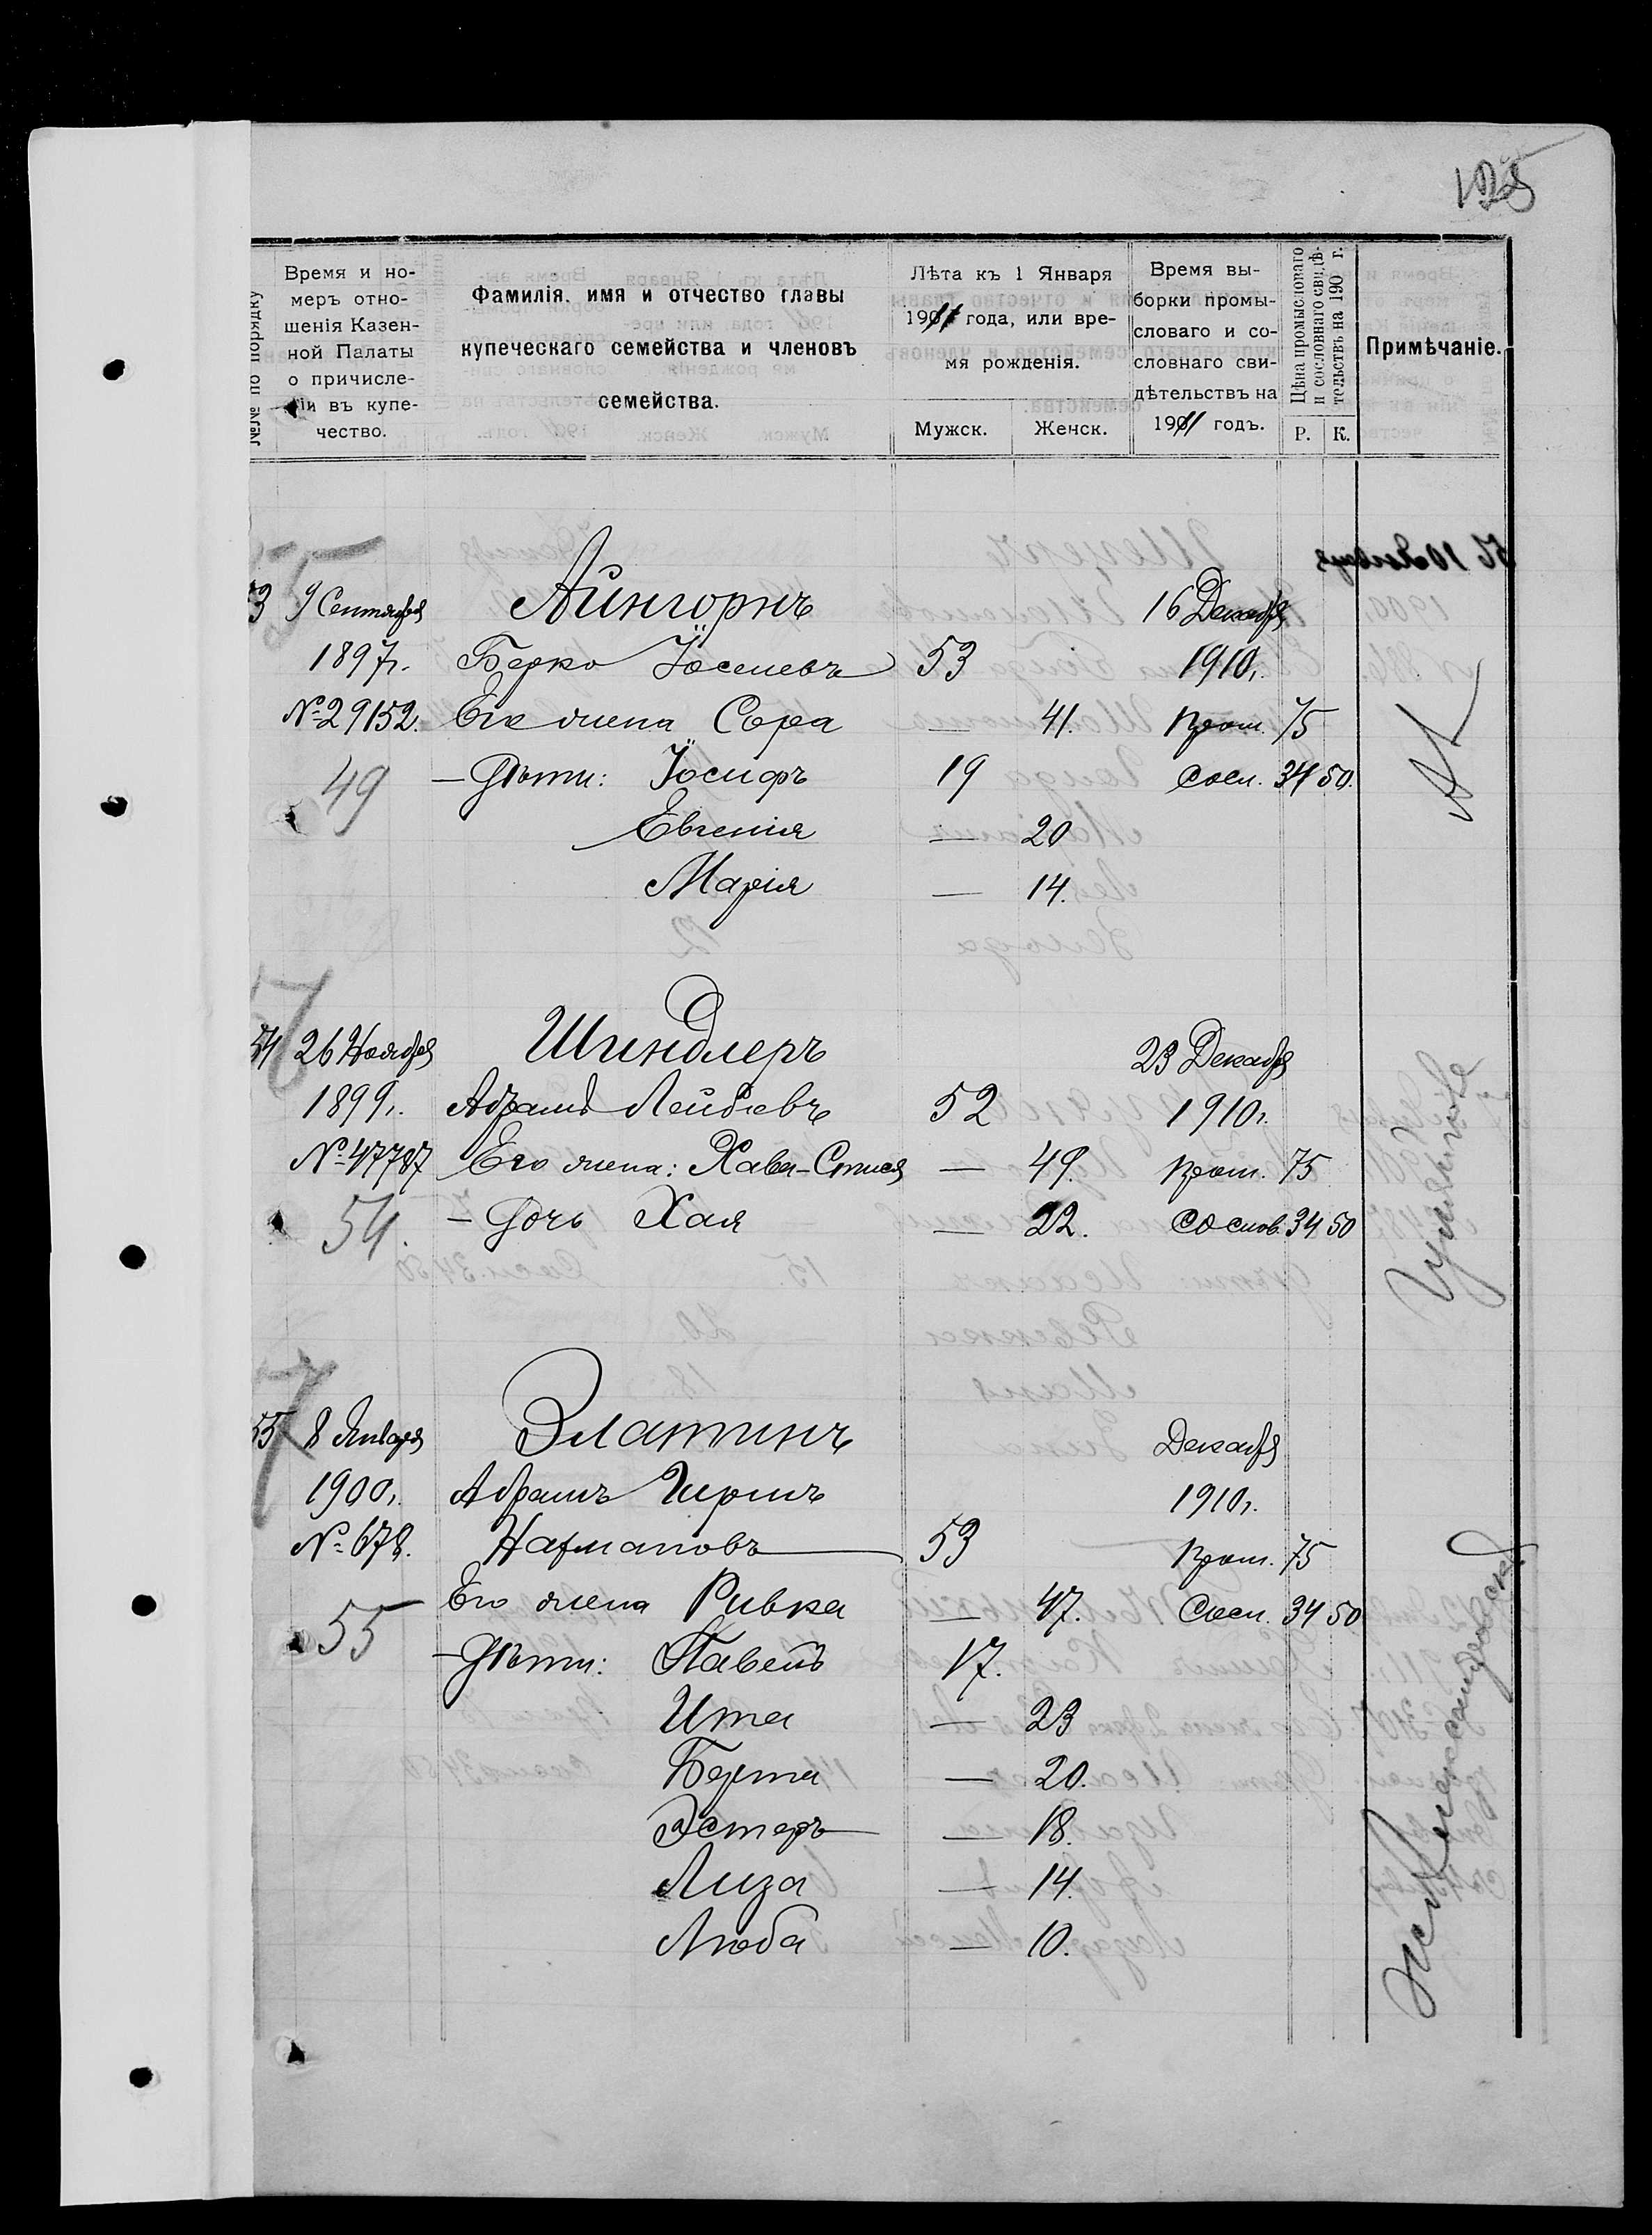 125
№№ по порядку
Время и но-
меръ отно-
шенія Казен-
ной Палаты
о причисле-
ніи въ купе-
чество.
Фамилія, имя и отчество главы
купеческаго семейства и членовъ
семейства.
Лѣта къ 1 Января
1911 года, или вре-
мя рожденія.
Мужск. Женск.
Время вы-
борки промы-
словаго и со-
словнаго сви-
дѣтельствъ на
1911 годъ.
Цѣна промысловаго
и сословнаго свидѣ-
тельствъ на 190 г.
Р. К.
Примѣчаніе.
53 9 Сентября Айнгорнъ 16 Декабря
1897г. Берко Іоселевъ 53 1910г.
№ 29152. Его жена Сора — 41. Пром. 75
49 — Дѣти: Іосифъ 19 Сосл. 34 50.
Евгенія — 20
Марія — 14.
54 26 Ноября Шиндлеръ 23 Декабря
1899г. Абрамъ Лейбовъ 52 1910г.
№ 47787 Его жена: Хава- — 49. Пром. 75
54. — Дочь Хая — 22. Сослов. 34 50
55 8 Января Златинъ Декабря
1900г. Абрамъ Гиршъ 1910г.
№ 678. Нахмановъ 53 Пром. 75
55 Его жена Ривка — 47. Сосл. 34 50
— Дѣти: Павелъ 17.
Ита — 23
Берта — 20.
Эстеръ — 18.
Лиза — 14.
Люба — 10.